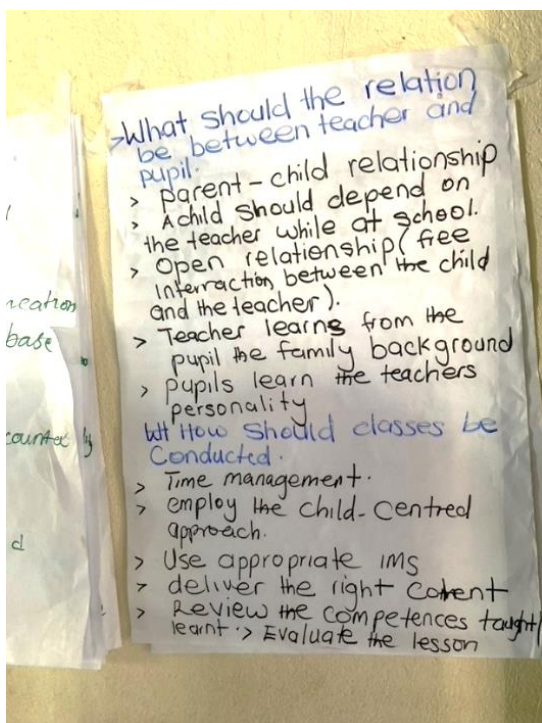 >What should the relation
be between teacher and
pupil.
> parent-child relationship
> A child should depend on
the teacher while at school.
> Open relationship (free
Interraction between the child
and the teacher).
> Teacher learns from the
pupil the family background
> pupils learn the teachers
personality
Wt How Should classes be
Conducted.
> Time management.
> employ the child-Centred
approach.
> Use appropriate IMS
> deliver the right Cotent
> Review the competences taught/
learnt. > Evaluate the lesson
reation
base
counted by
d